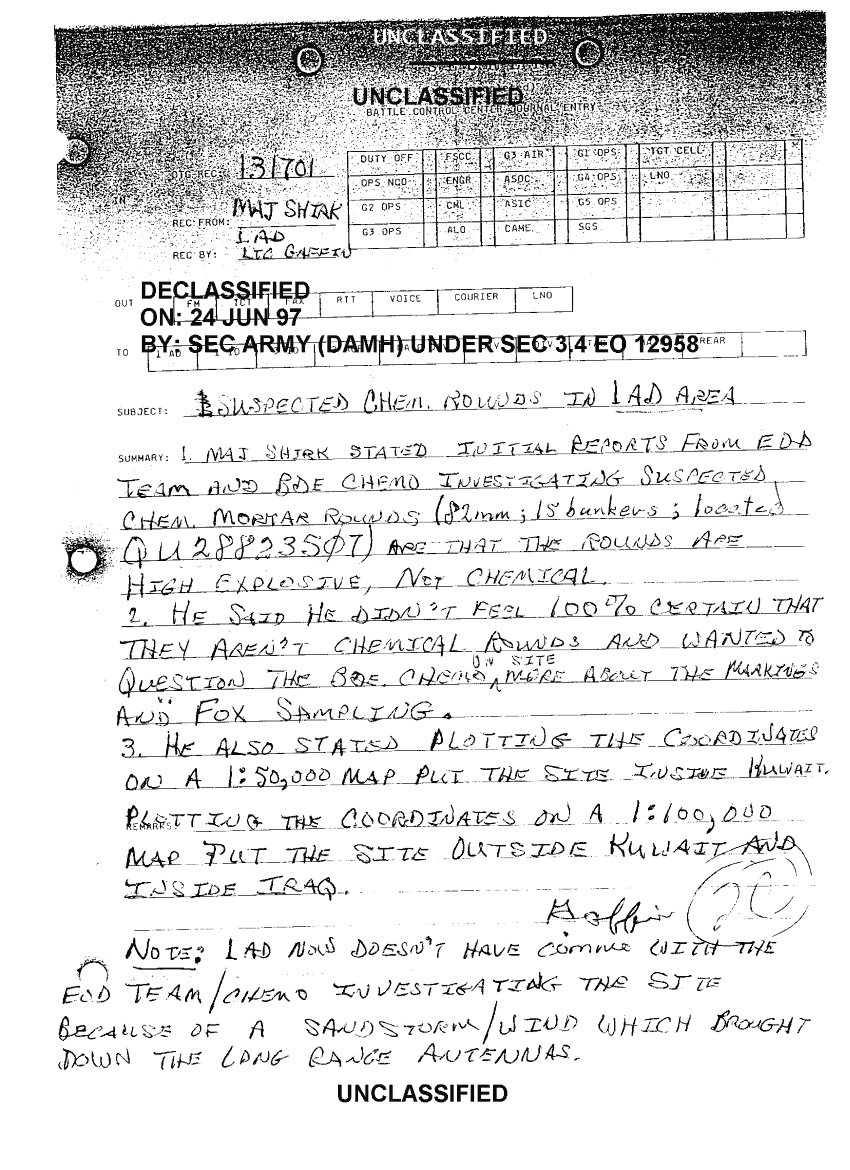 UNCLASSIFIED
UNCLASSIFIED
BATTLE CONTROL CENTER JOURNAL ENTRY
DTG REC: 131701
DUTY OFF FSCC G3 AIR G1 OPS TGT CELL
OPS NCO ENGR ASOC G4 OPS LNO
IN
REC FROM: MAJ SHIRK
G2 OPS CML ASIC G5 OPS
1AD
G3 OPS ALO CAME SGS
REC BY: LTC GAFFIN
DECLASSIFIED
OUT FM TCT FAX RTT VOICE COURIER LNO
ON: 24 JUN 97
BY: SEC ARMY (DAMH) UNDER SEC 3.4 EO 12958
TO 1 AD REAR
SUBJECT: SUSPECTED CHEM. ROUNDS IN 1AD AREA
SUMMARY: 1. MAJ SHIRK STATED INITIAL REPORTS FROM EOD
TEAM AND BDE CHEMO INVESTIGATING SUSPECTED
CHEM. MORTAR ROUNDS (82mm; 15 bunkers; located
QU28823507) ARE THAT THE ROUNDS ARE
HIGH EXPLOSIVE, NOT CHEMICAL.
2. HE SAID HE DIDN'T FEEL 100% CERTAIN THAT
THEY AREN'T CHEMICAL ROUNDS AND WANTED TO
QUESTION THE BDE. CHEMO ON SITE MORE ABOUT THE MARKINGS
AND FOX SAMPLING.
3. HE ALSO STATED PLOTTING THE COORDINATES
ON A 1:50,000 MAP PUT THE SITE INSIDE KUWAIT.
REMARKS: PLOTTING THE COORDINATES ON A 1:100,000
MAP PUT THE SITE OUTSIDE KUWAIT AND
INSIDE IRAQ.
Gaffin
NOTE: 1AD NOW DOESN'T HAVE commo WITH THE
EOD TEAM/CHEMO INVESTIGATING THE SITE
BECAUSE OF A SANDSTORM/WIND WHICH BROUGHT
DOWN THE LONG RANGE ANTENNAS.
UNCLASSIFIED